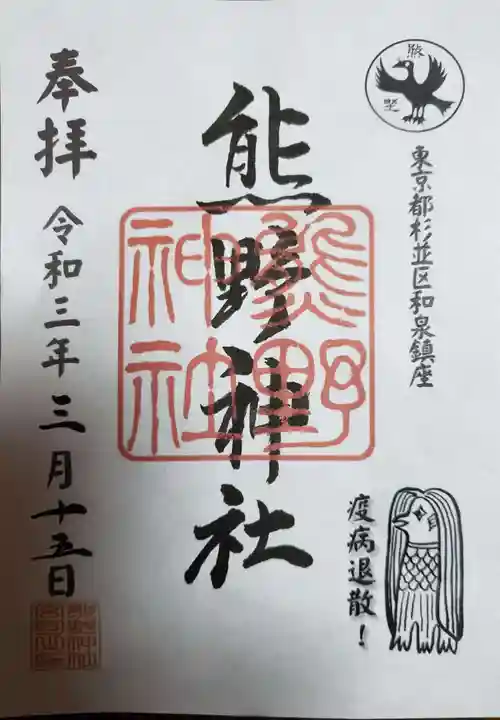 熊野
東京都杉並区和泉鎮座
疫病退散！
熊野神社
熊野
神社
奉拝
令和三年三月十五日